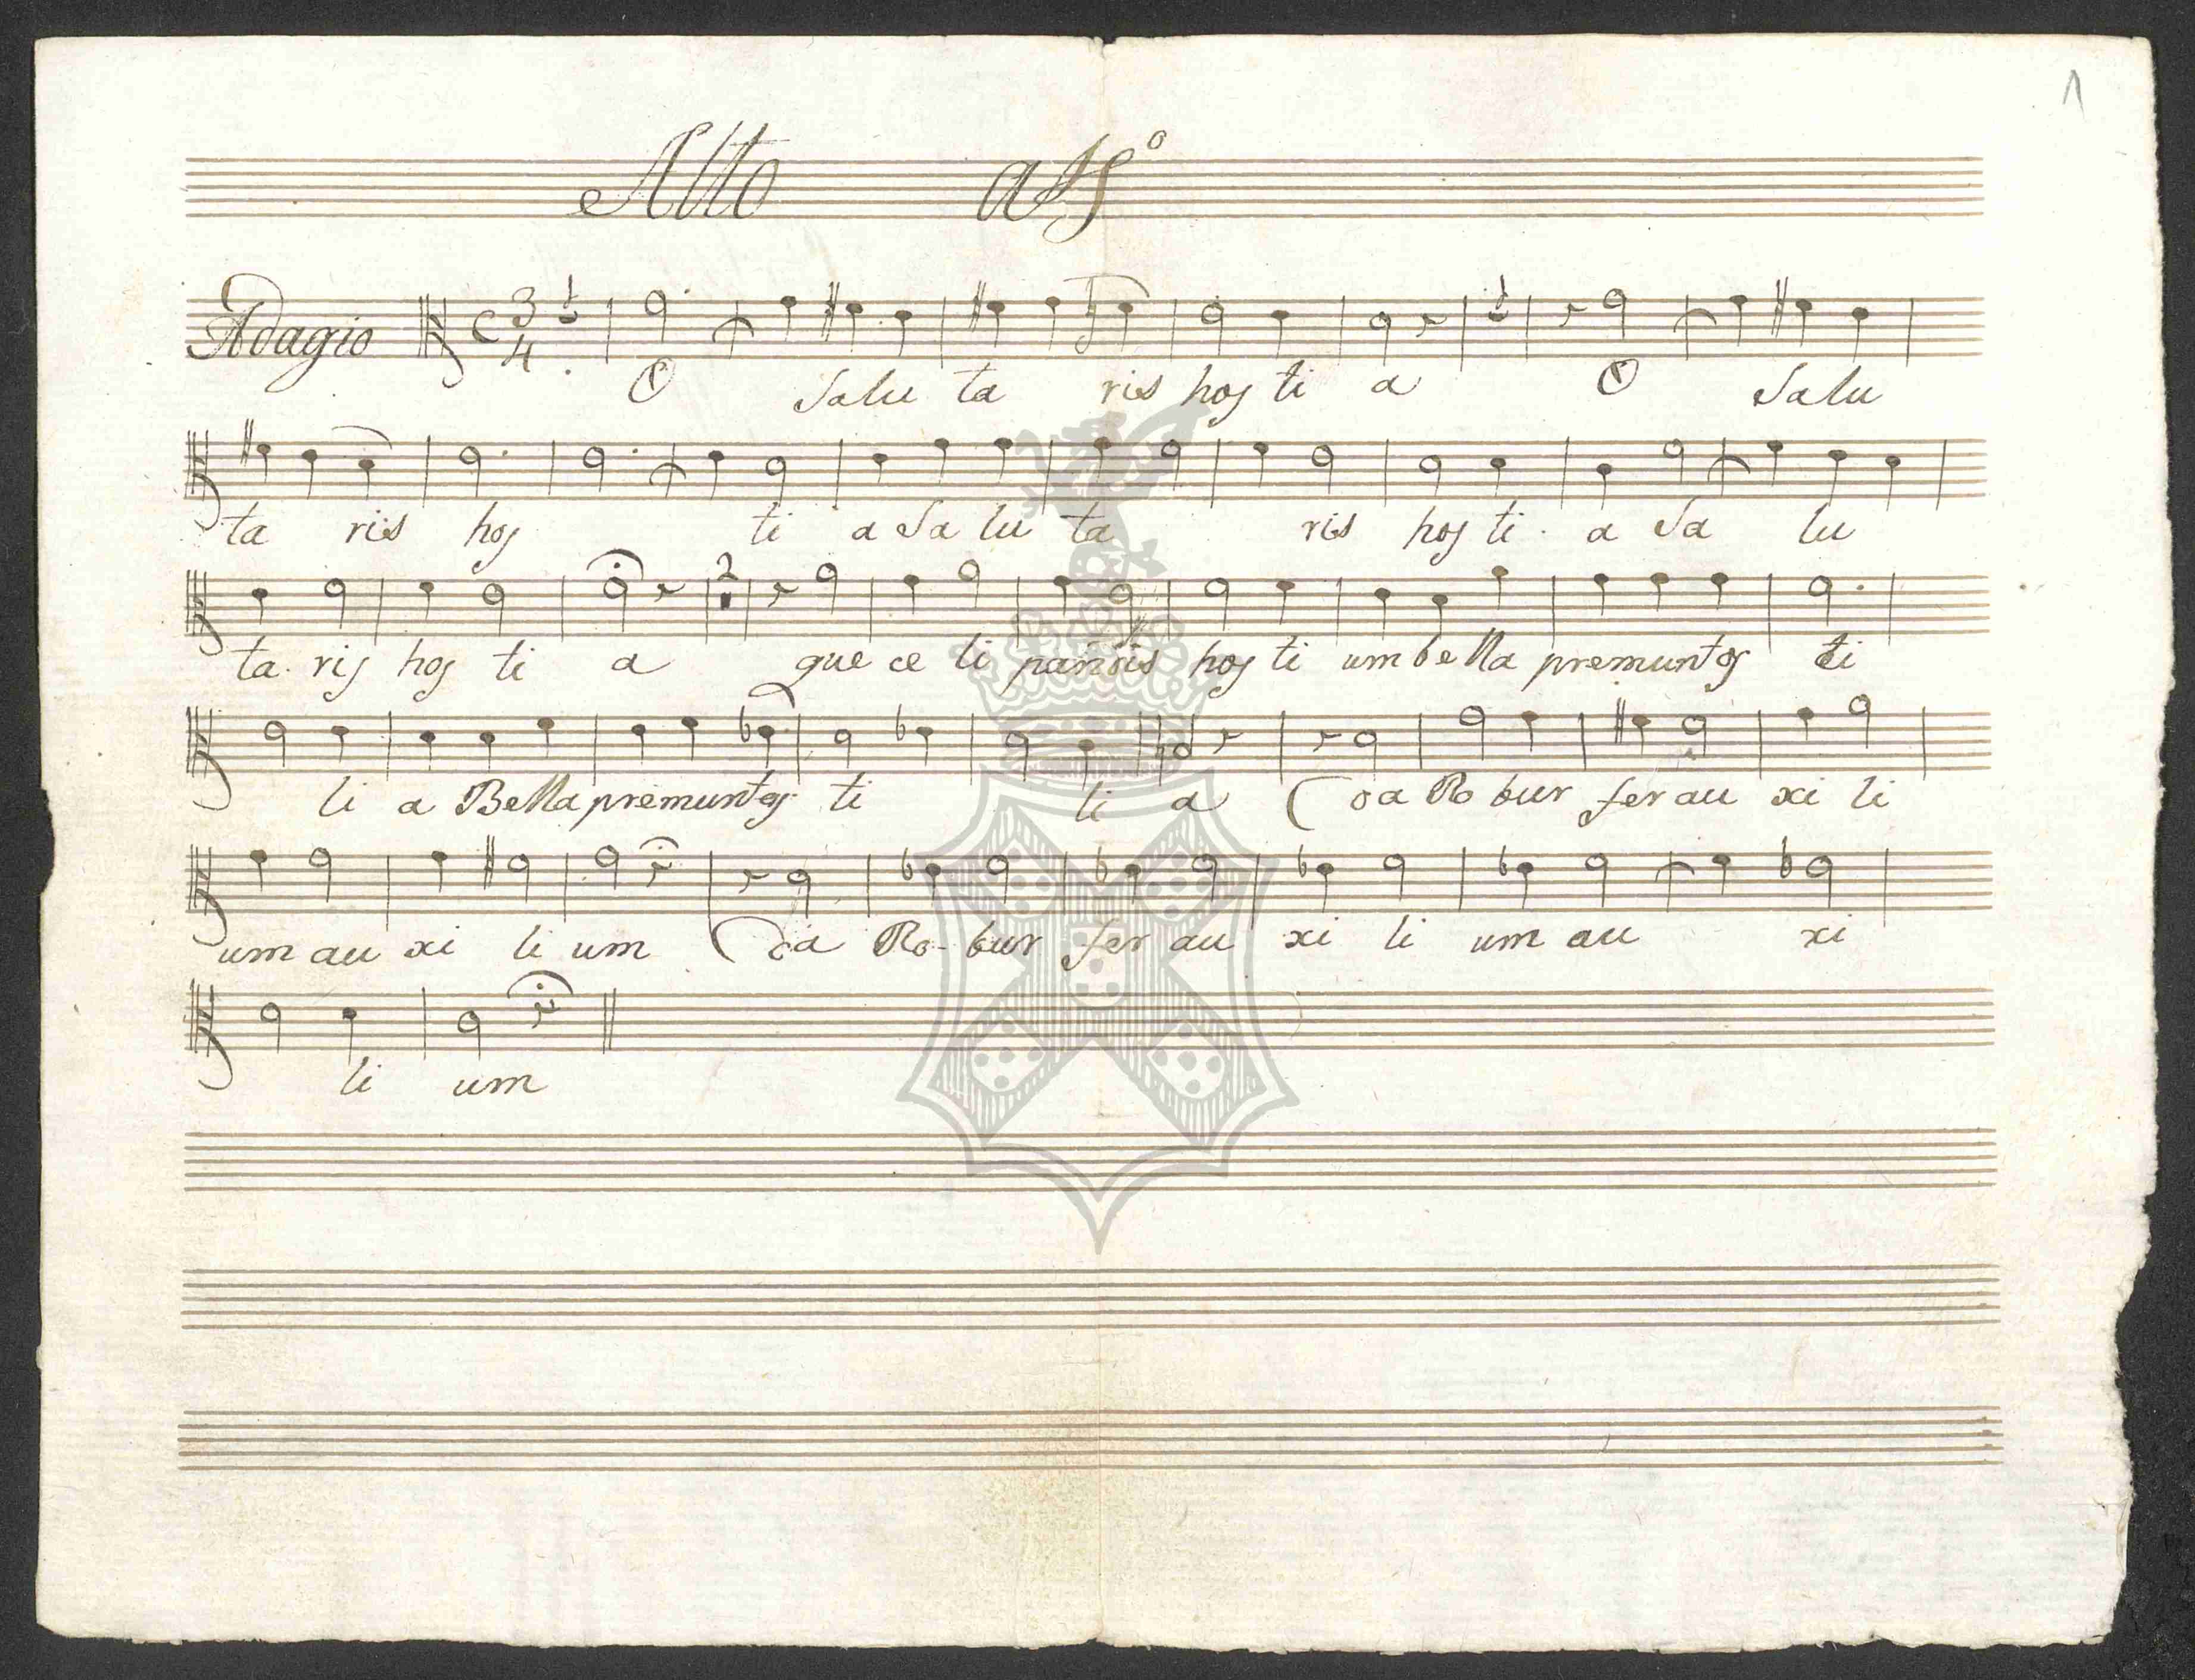 1
Alto a 4º
Adagio C 3 4
O Salu ta ris hos ti a O Salu
ta ris hos ti a Sa lu ta ris hos ti a Sa lu
2
ta ris hos ti a que ce li pandis hos ti um be lla premunt os ti
li a Bella premunt os ti li a Da Ro bur fer au xi li
um au xi li um Da Ro bur fer au xi li um au xi
li um